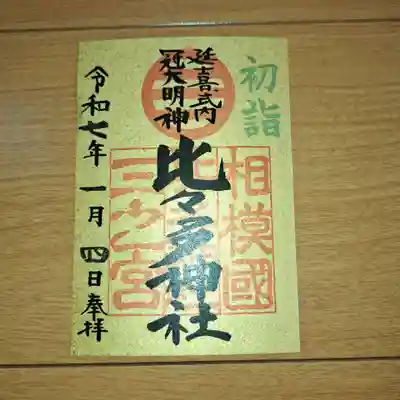 初詣
延喜式内
冠大明神
比々多神社
相模國
三之宮
令和七年一月四日奉拝